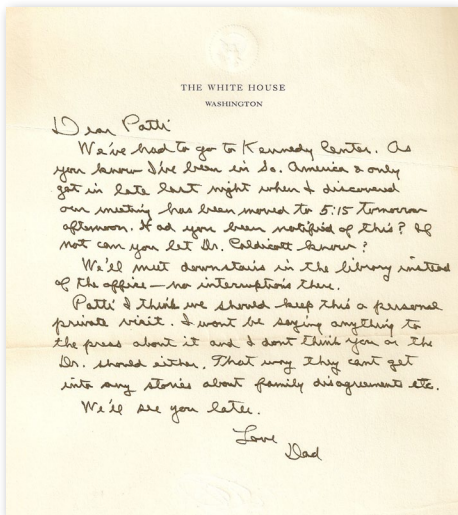 THE WHITE HOUSE
WASHINGTON
Dear Patti
We've had to go to Kennedy Center. As
you know I've been in So. America & only
got in late last night when I discovered
our meeting has been moved to 5:15 tomorrow
afternoon. Had you been notified of this? If
not can you let Dr. Caldicott know?
We'll meet downstairs in the library instead
of the office — no interruptions there.
Patti I think we should keep this a personal
private visit. I wont be saying anything to
the press about it and I dont think you or the
Dr. should either. That way they cant get
into any stories about family disagreements etc.
We'll see you later.
Love
Dad